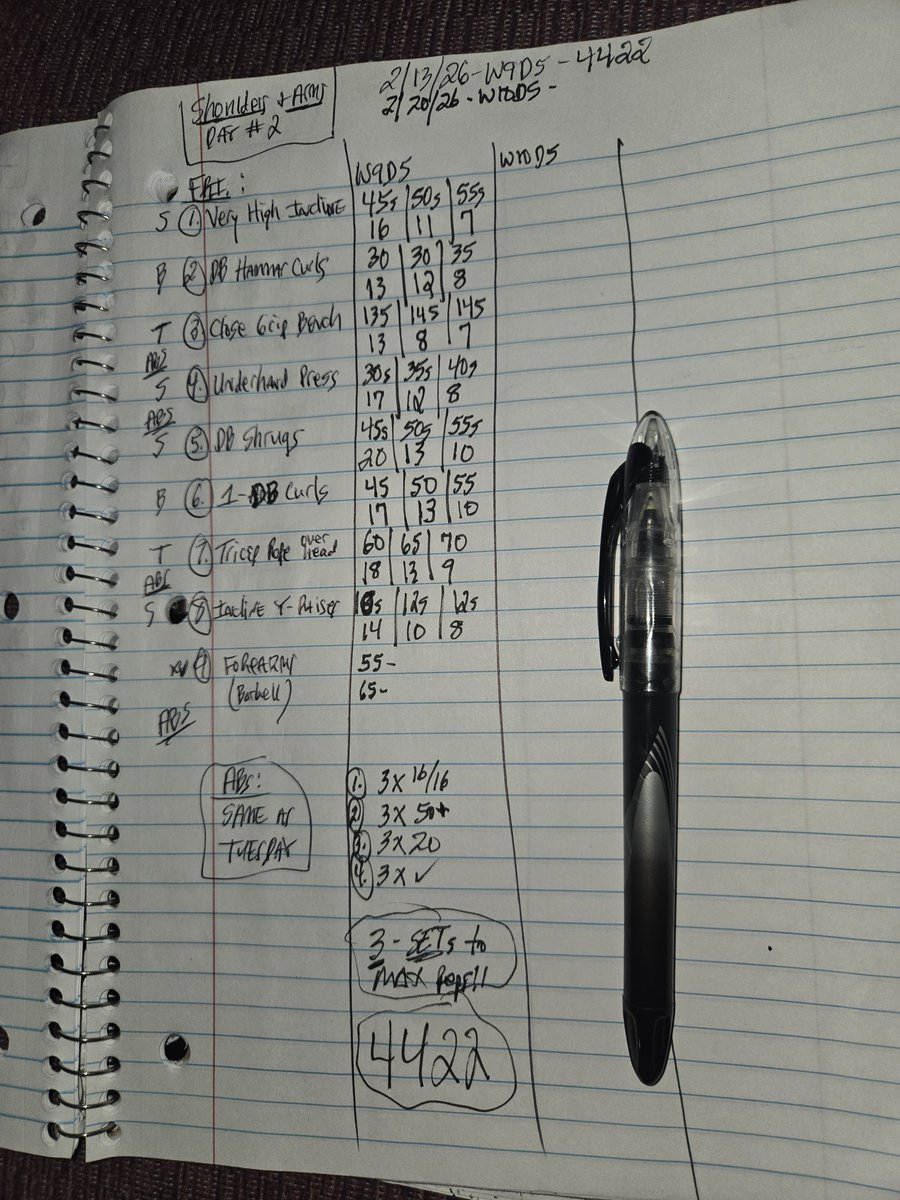 2/13/26-W9D5-4422
2/20/26-W10D5-
Shoulders & Arms
DAY #2
W9D5 W10D5
FRI.:
S 1. Very High Incline 45s 50s 55s
16 11 7
B 2. DB Hammar Curls 30 30 35
13 12 8
T 3. Close Grip Bench 135 145 145
13 8 7
ABS
S 4. Underhand Press 30s 35s 40s
17 12 8
ABS
S 5. DB Shrugs 45s 50s 55s
20 13 10
B 6. 1-DB Curls 45 50 55
17 13 10
T 7. Tricep Rope over head 60 65 70
18 13 9
ABS
S 8. Incline Y-Raises 12s 12s
14 10 8
9. FOREARMS 55-
(Barbell) 65-
ABS
ABS: 1. 3x 16/16
SAME AS 2. 3x 50+
TUESDAY 3. 3x20
4. 3x ✓
3-SETs to
MAX Reps!!
4422